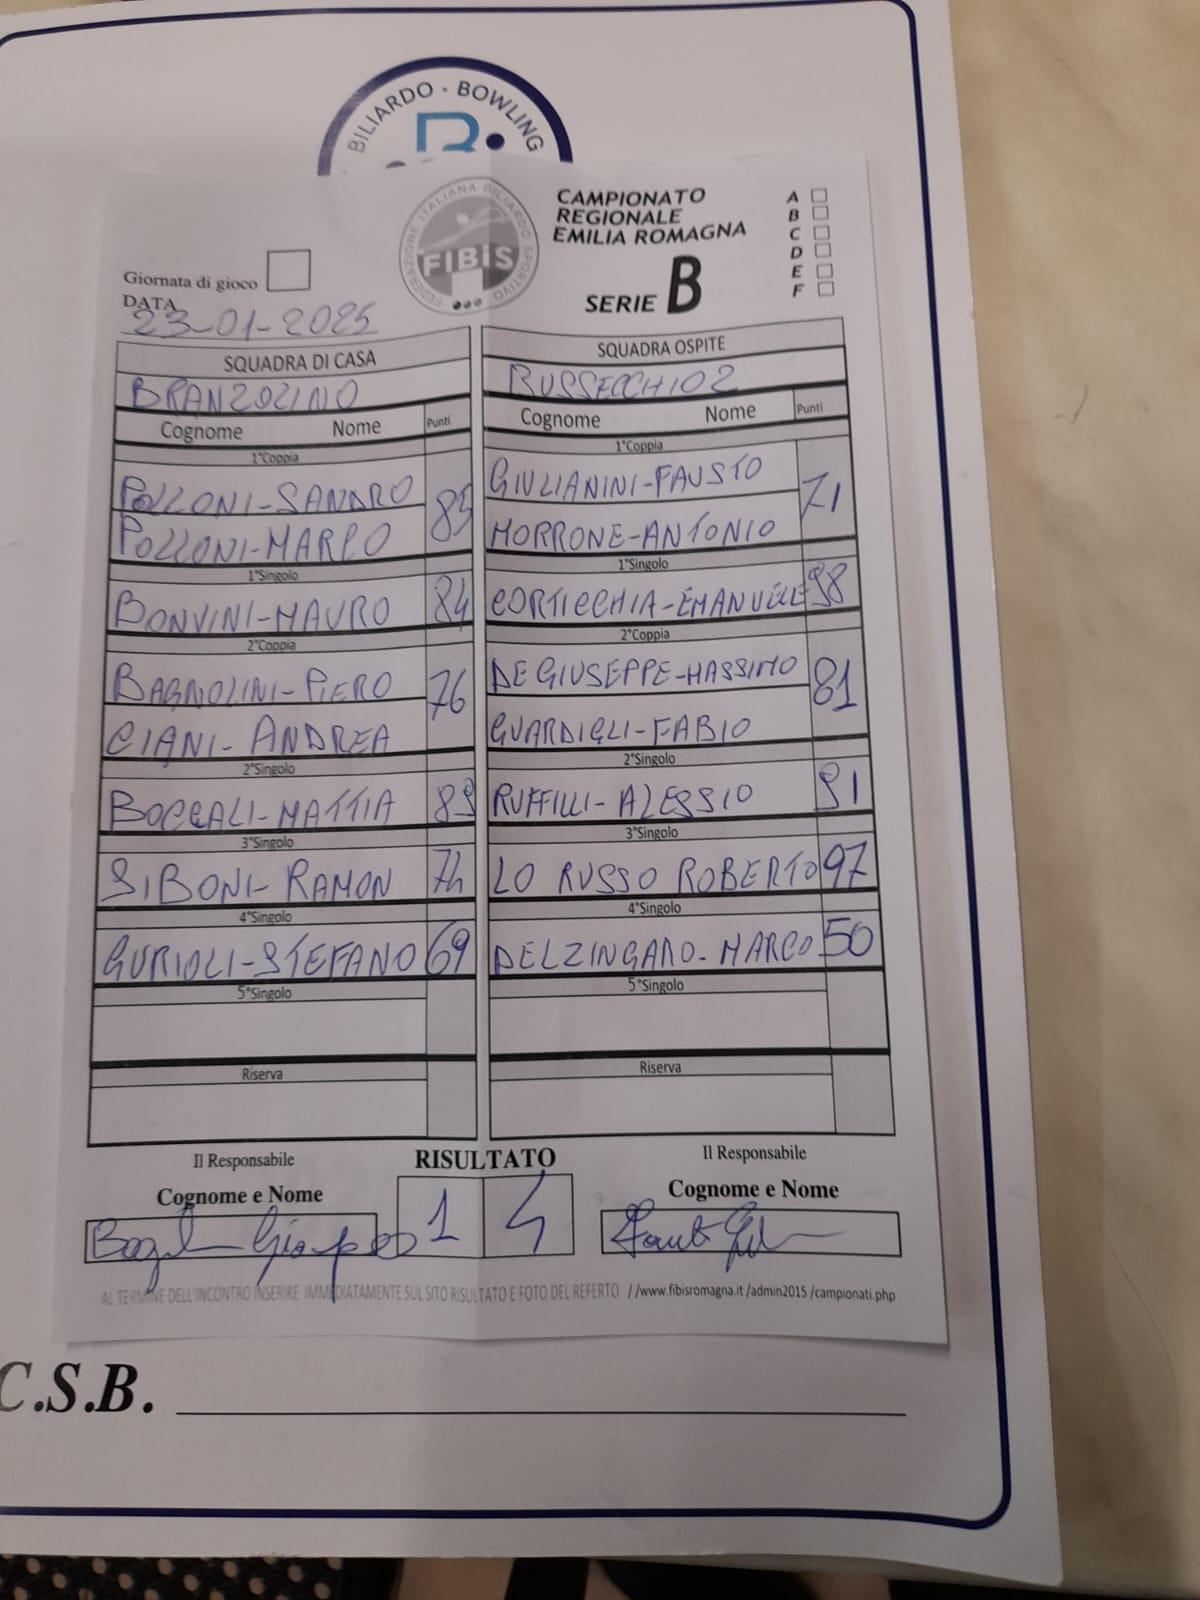 BILIARDO - BOWLING
FEDERAZIONE ITALIANA BILIARDO SPORTIVO
FIBiS
CAMPIONATO
REGIONALE
EMILIA ROMAGNA
SERIE B
A
B
C
D
E
F
Giornata di gioco
DATA
23-01-2025
SQUADRA DI CASA SQUADRA OSPITE
BRANZOLINO RUSSECCHIO2
Cognome Nome Punti Cognome Nome Punti
1°Coppia 1°Coppia
POLLONI-SANDRO 85 GIULIANINI-FAUSTO 71
POLLONI-MARCO MORRONE-ANTONIO
1°Singolo 1°Singolo
BONVINI-MAURO 84 CORTICCHIA-EMANUELE 98
2°Coppia 2°Coppia
BAGNOLINI-PIERO 76 DE GIUSEPPE-MASSIMO 81
CIANI-ANDREA GUARDIGLI-FABIO
2°Singolo 2°Singolo
BOCCALI-MATTIA 89 RUFFILLI-ALESSIO 91
3°Singolo 3°Singolo
SIBONI-RAMON 74 LO RUSSO ROBERTO 97
4°Singolo 4°Singolo
GURIOLI-STEFANO 69 DELZINGARO-MARCO 50
5°Singolo 5°Singolo
Riserva Riserva
Il Responsabile RISULTATO Il Responsabile
Cognome e Nome 1 4 Cognome e Nome
AL TERMINE DELL'INCONTRO INSERIRE IMMEDIATAMENTE SUL SITO RISULTATO E FOTO DEL REFERTO //www.fibisromagna.it /admin2015 /campionati.php
C.S.B.